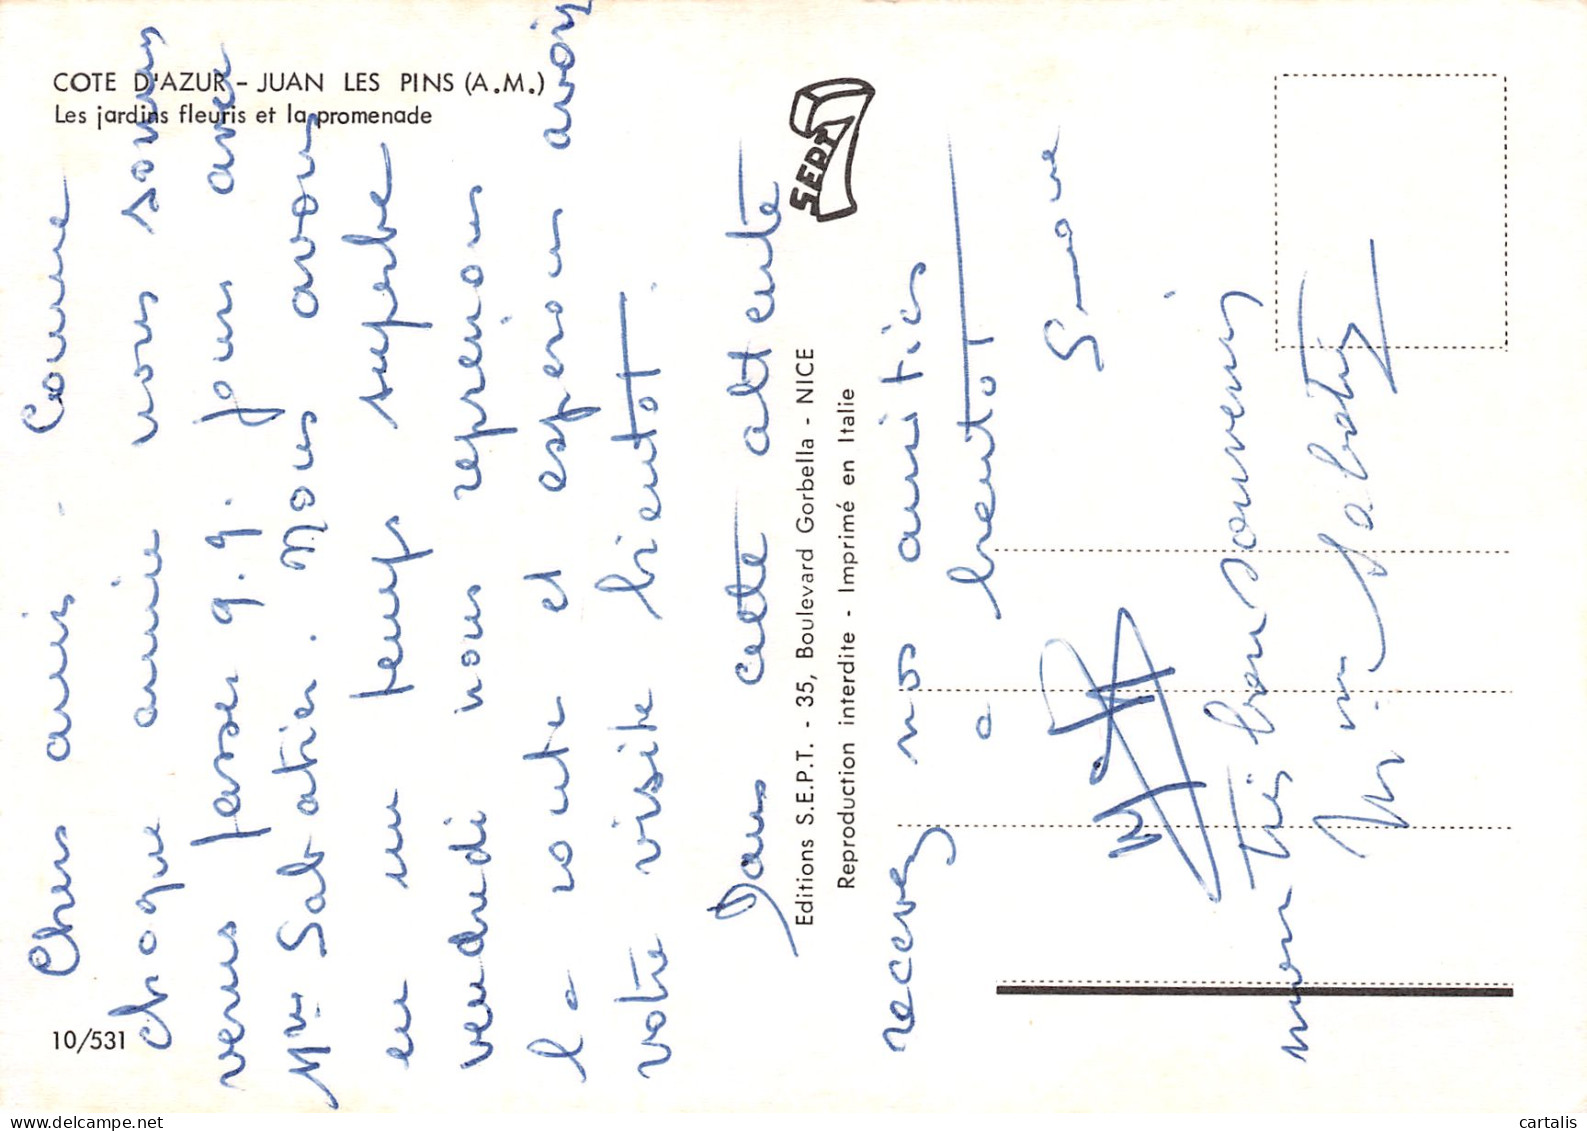 COTE D'AZUR - JUAN LES PINS (A.M.)
Les jardins fleuris et la promenade
Chers amis. Comme
chaque année nous sommes
venus passer q.q. jours avec
Mme Sabatier. Nous avons
eu un temps superbe
vendredi nous reprenons
la route et espérons avoir
votre visite bientot.
Dans cette attente
recevez nos amities
a bientot
Simone
Très bon souvenir
mon
Sabatier
SEPT
Editions S.E.P.T. - 35, Boulevard Gorbella - NICE
Reproduction interdite - Imprimé en Italie
10/531
cartalis